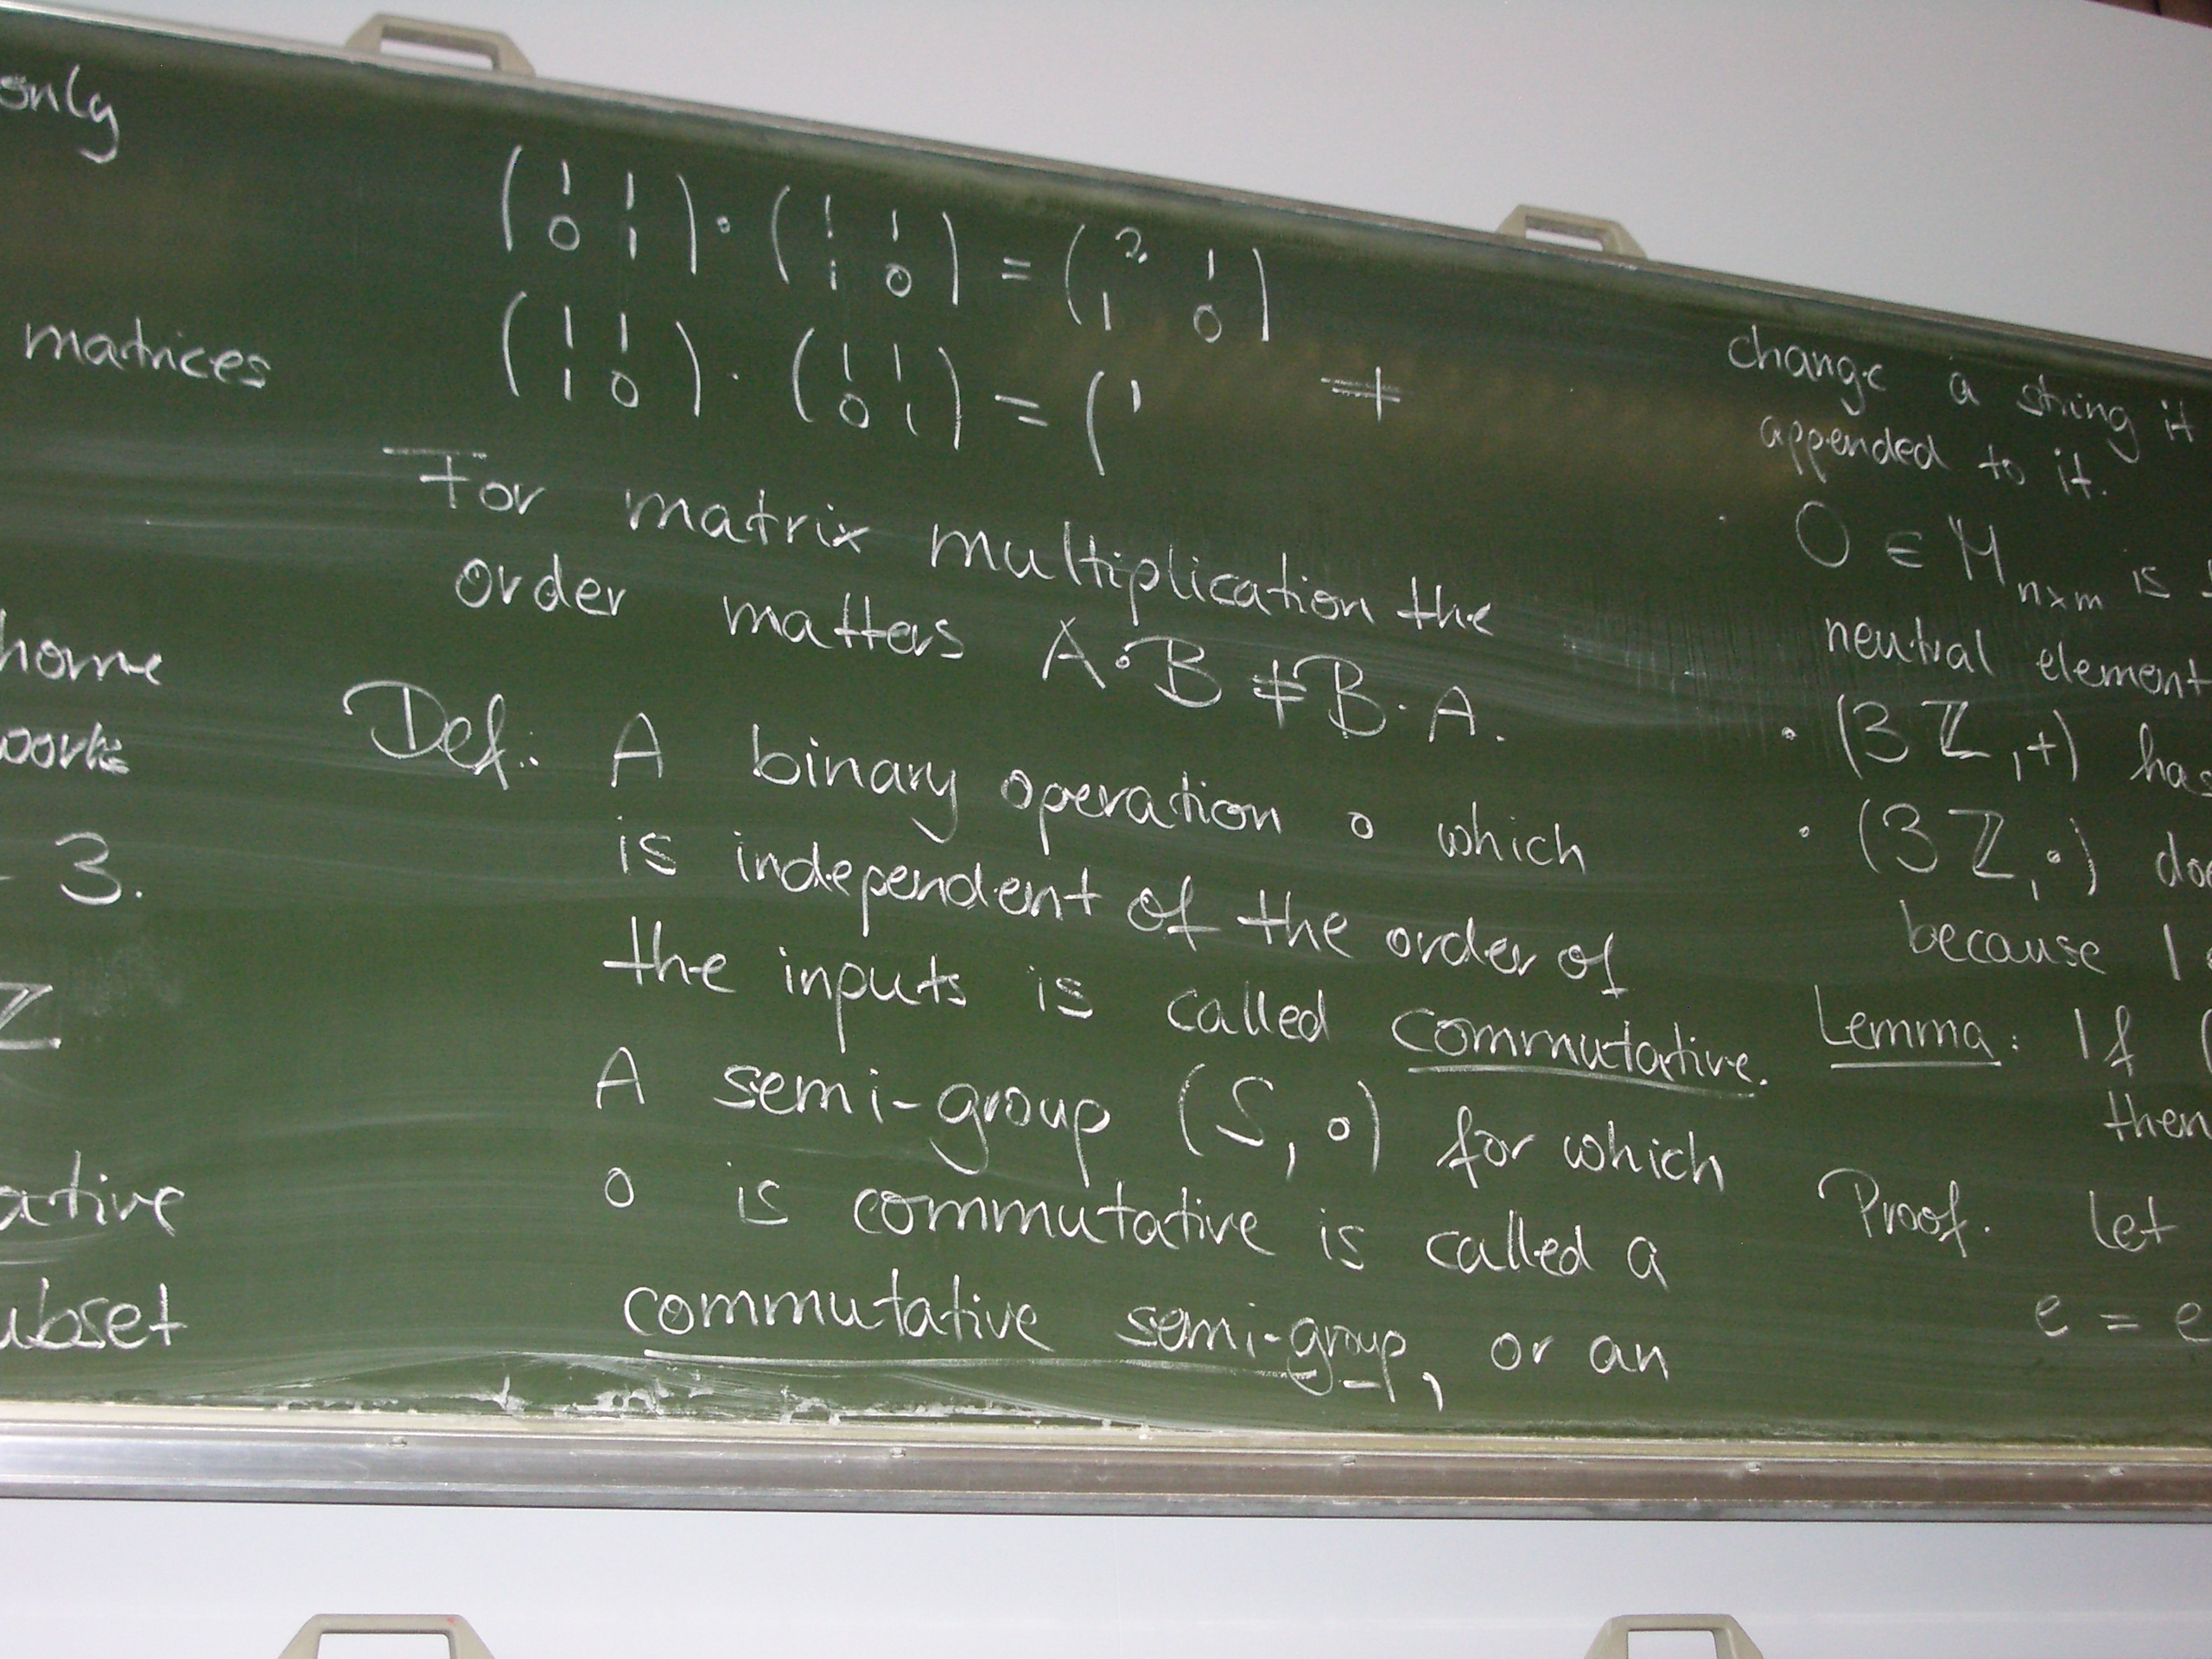 only
matrices
home
work
- 3.
ℤ
ative
ubset
( 1 1 ) ∘ ( 1 1 ) = ( 2 1 )
( 0 1 ) ( 1 0 ) ( 1 0 )
( 1 1 ) · ( 1 1 ) = ( 1 ≠
( 1 0 ) ( 0 1 )
For matrix multiplication the
order matters A∘B ≠ B·A.
Def.: A binary operation ∘ which
is independent of the order of
the inputs is called commutative.
A semi-group (S, ∘) for which
∘ is commutative is called a
commutative semi-group, or an
change a string it
appended to it.
O ∈ M_{n×m} is
neutral element
· (3ℤ, +) has
· (3ℤ, ∘) doe
because 1
Lemma: If (
then
Proof. Let
e = e